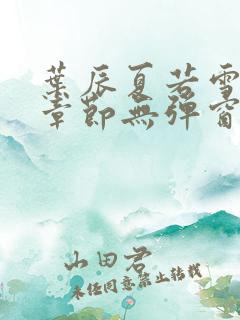 葉辰夏若雪
章節無彈窗
山田君
未經同意禁止轉載